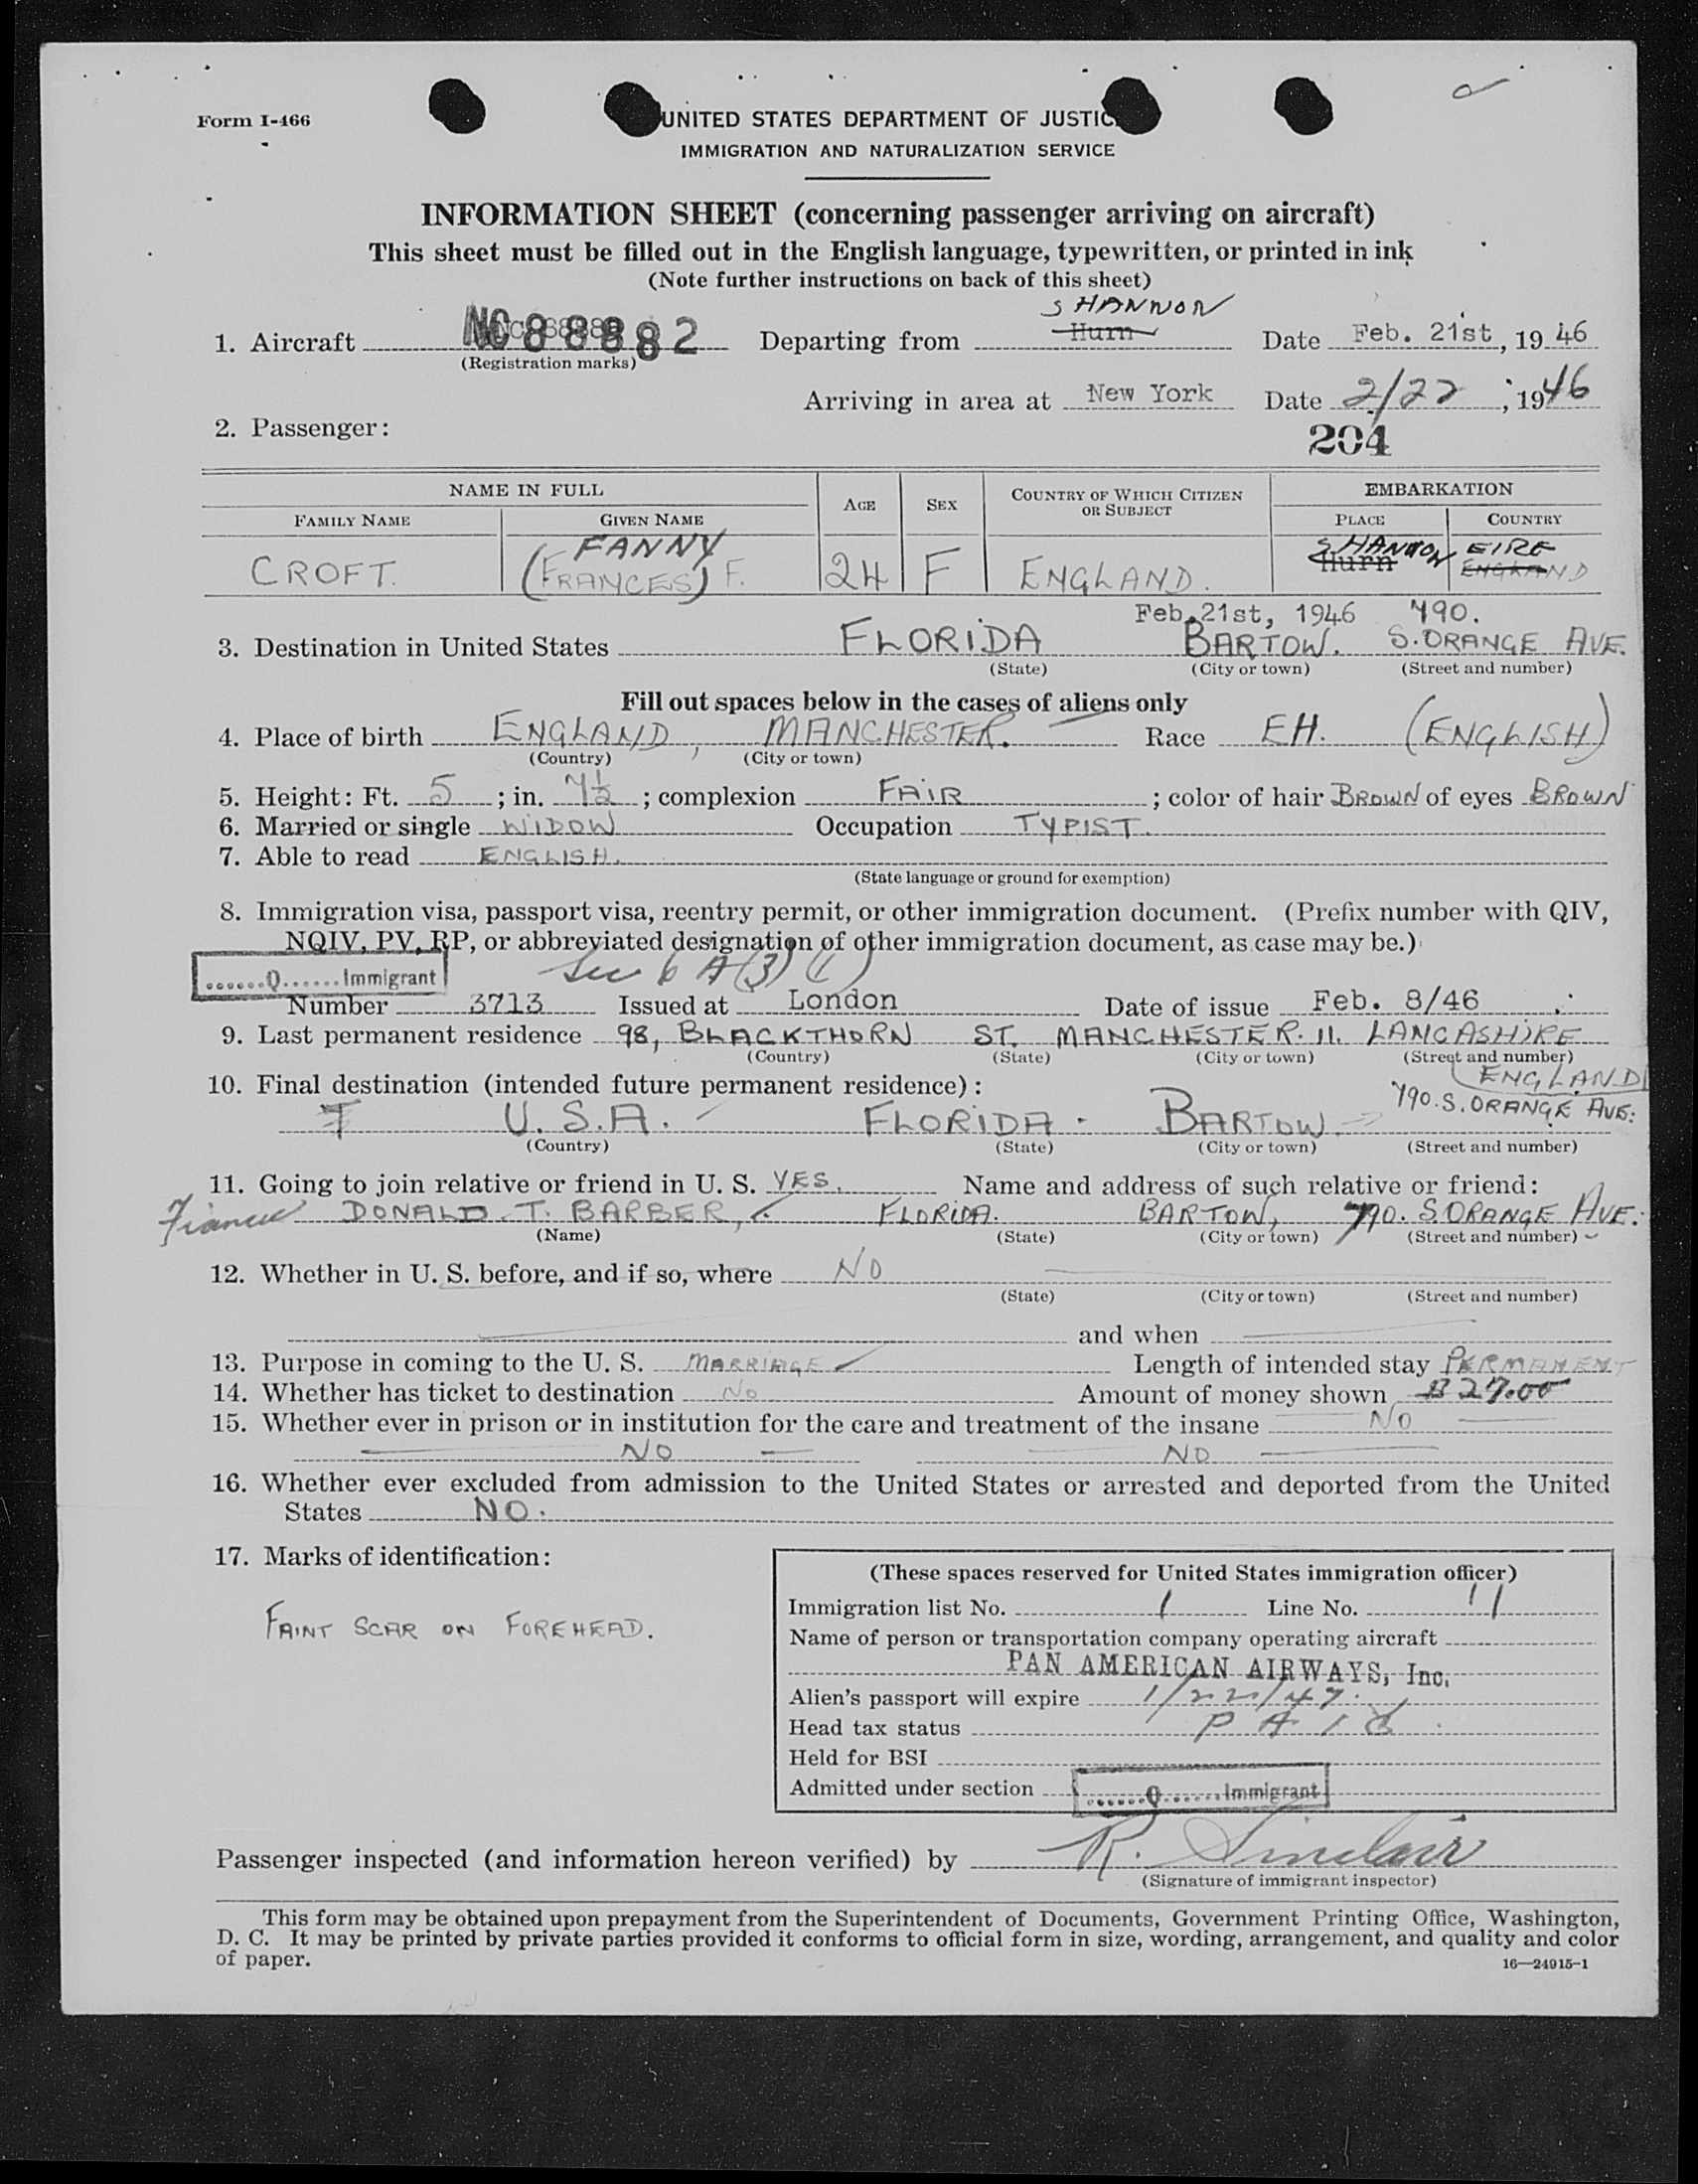 Form I-466
UNITED STATES DEPARTMENT OF JUSTIC
IMMIGRATION AND NATURALIZATION SERVICE
INFORMATION SHEET (concerning passenger arriving on aircraft)
This sheet must be filled out in the English language, typewritten, or printed in ink
(Note further instructions on back of this sheet)
SHANNON
1. Aircraft NC 88882 Departing from Hurn Date Feb. 21st, 19 46
(Registration marks)
Arriving in area at New York Date 2/22, 1946
2. Passenger:
204
NAME IN FULL AGE SEX COUNTRY OF WHICH CITIZEN OR SUBJECT EMBARKATION
FAMILY NAME GIVEN NAME PLACE COUNTRY
FANNY SHANNON EIRE
CROFT. (FRANCES) F. 24 F ENGLAND. Hurn ENGLAND
Feb. 21st, 1946 790.
3. Destination in United States FLORIDA BARTOW. S. ORANGE AVE.
(State) (City or town) (Street and number)
Fill out spaces below in the cases of aliens only
4. Place of birth ENGLAND, MANCHESTER. Race EH. (ENGLISH)
(Country) (City or town)
5. Height: Ft. 5; in. 7½; complexion FAIR; color of hair BROWN of eyes BROWN
6. Married or single WIDOW Occupation TYPIST.
7. Able to read ENGLISH.
(State language or ground for exemption)
8. Immigration visa, passport visa, reentry permit, or other immigration document. (Prefix number with QIV,
NQIV, PV, RP, or abbreviated designation of other immigration document, as case may be.)
......Q......Immigrant Sec 6 A(3) (1)
Number 3713 Issued at London Date of issue Feb. 8/46
9. Last permanent residence 98, BLACKTHORN ST. MANCHESTER. 11. LANCASHIRE
(Country) (State) (City or town) (Street and number)
ENGLAND
10. Final destination (intended future permanent residence):
U.S.A. FLORIDA. BARTOW. 790. S. ORANGE AVE.
(Country) (State) (City or town) (Street and number)
11. Going to join relative or friend in U. S. YES. Name and address of such relative or friend:
Fiance DONALD. T. BARBER, FLORIDA. BARTOW, 790. S. ORANGE AVE.
(Name) (State) (City or town) (Street and number)
12. Whether in U. S. before, and if so, where NO
(State) (City or town) (Street and number)
and when
13. Purpose in coming to the U. S. MARRIAGE Length of intended stay PERMANENT
14. Whether has ticket to destination No Amount of money shown $ 27.00
15. Whether ever in prison or in institution for the care and treatment of the insane NO
NO NO
16. Whether ever excluded from admission to the United States or arrested and deported from the United
States NO.
17. Marks of identification:
FAINT SCAR ON FOREHEAD.
(These spaces reserved for United States immigration officer)
Immigration list No. 1 Line No. 11
Name of person or transportation company operating aircraft
PAN AMERICAN AIRWAYS, Inc.
Alien's passport will expire 1/22/47.
Head tax status PAID
Held for BSI
Admitted under section ......Q......Immigrant
Passenger inspected (and information hereon verified) by R. Sinclair
(Signature of immigrant inspector)
This form may be obtained upon prepayment from the Superintendent of Documents, Government Printing Office, Washington,
D. C. It may be printed by private parties provided it conforms to official form in size, wording, arrangement, and quality and color
of paper.
16—24915-1